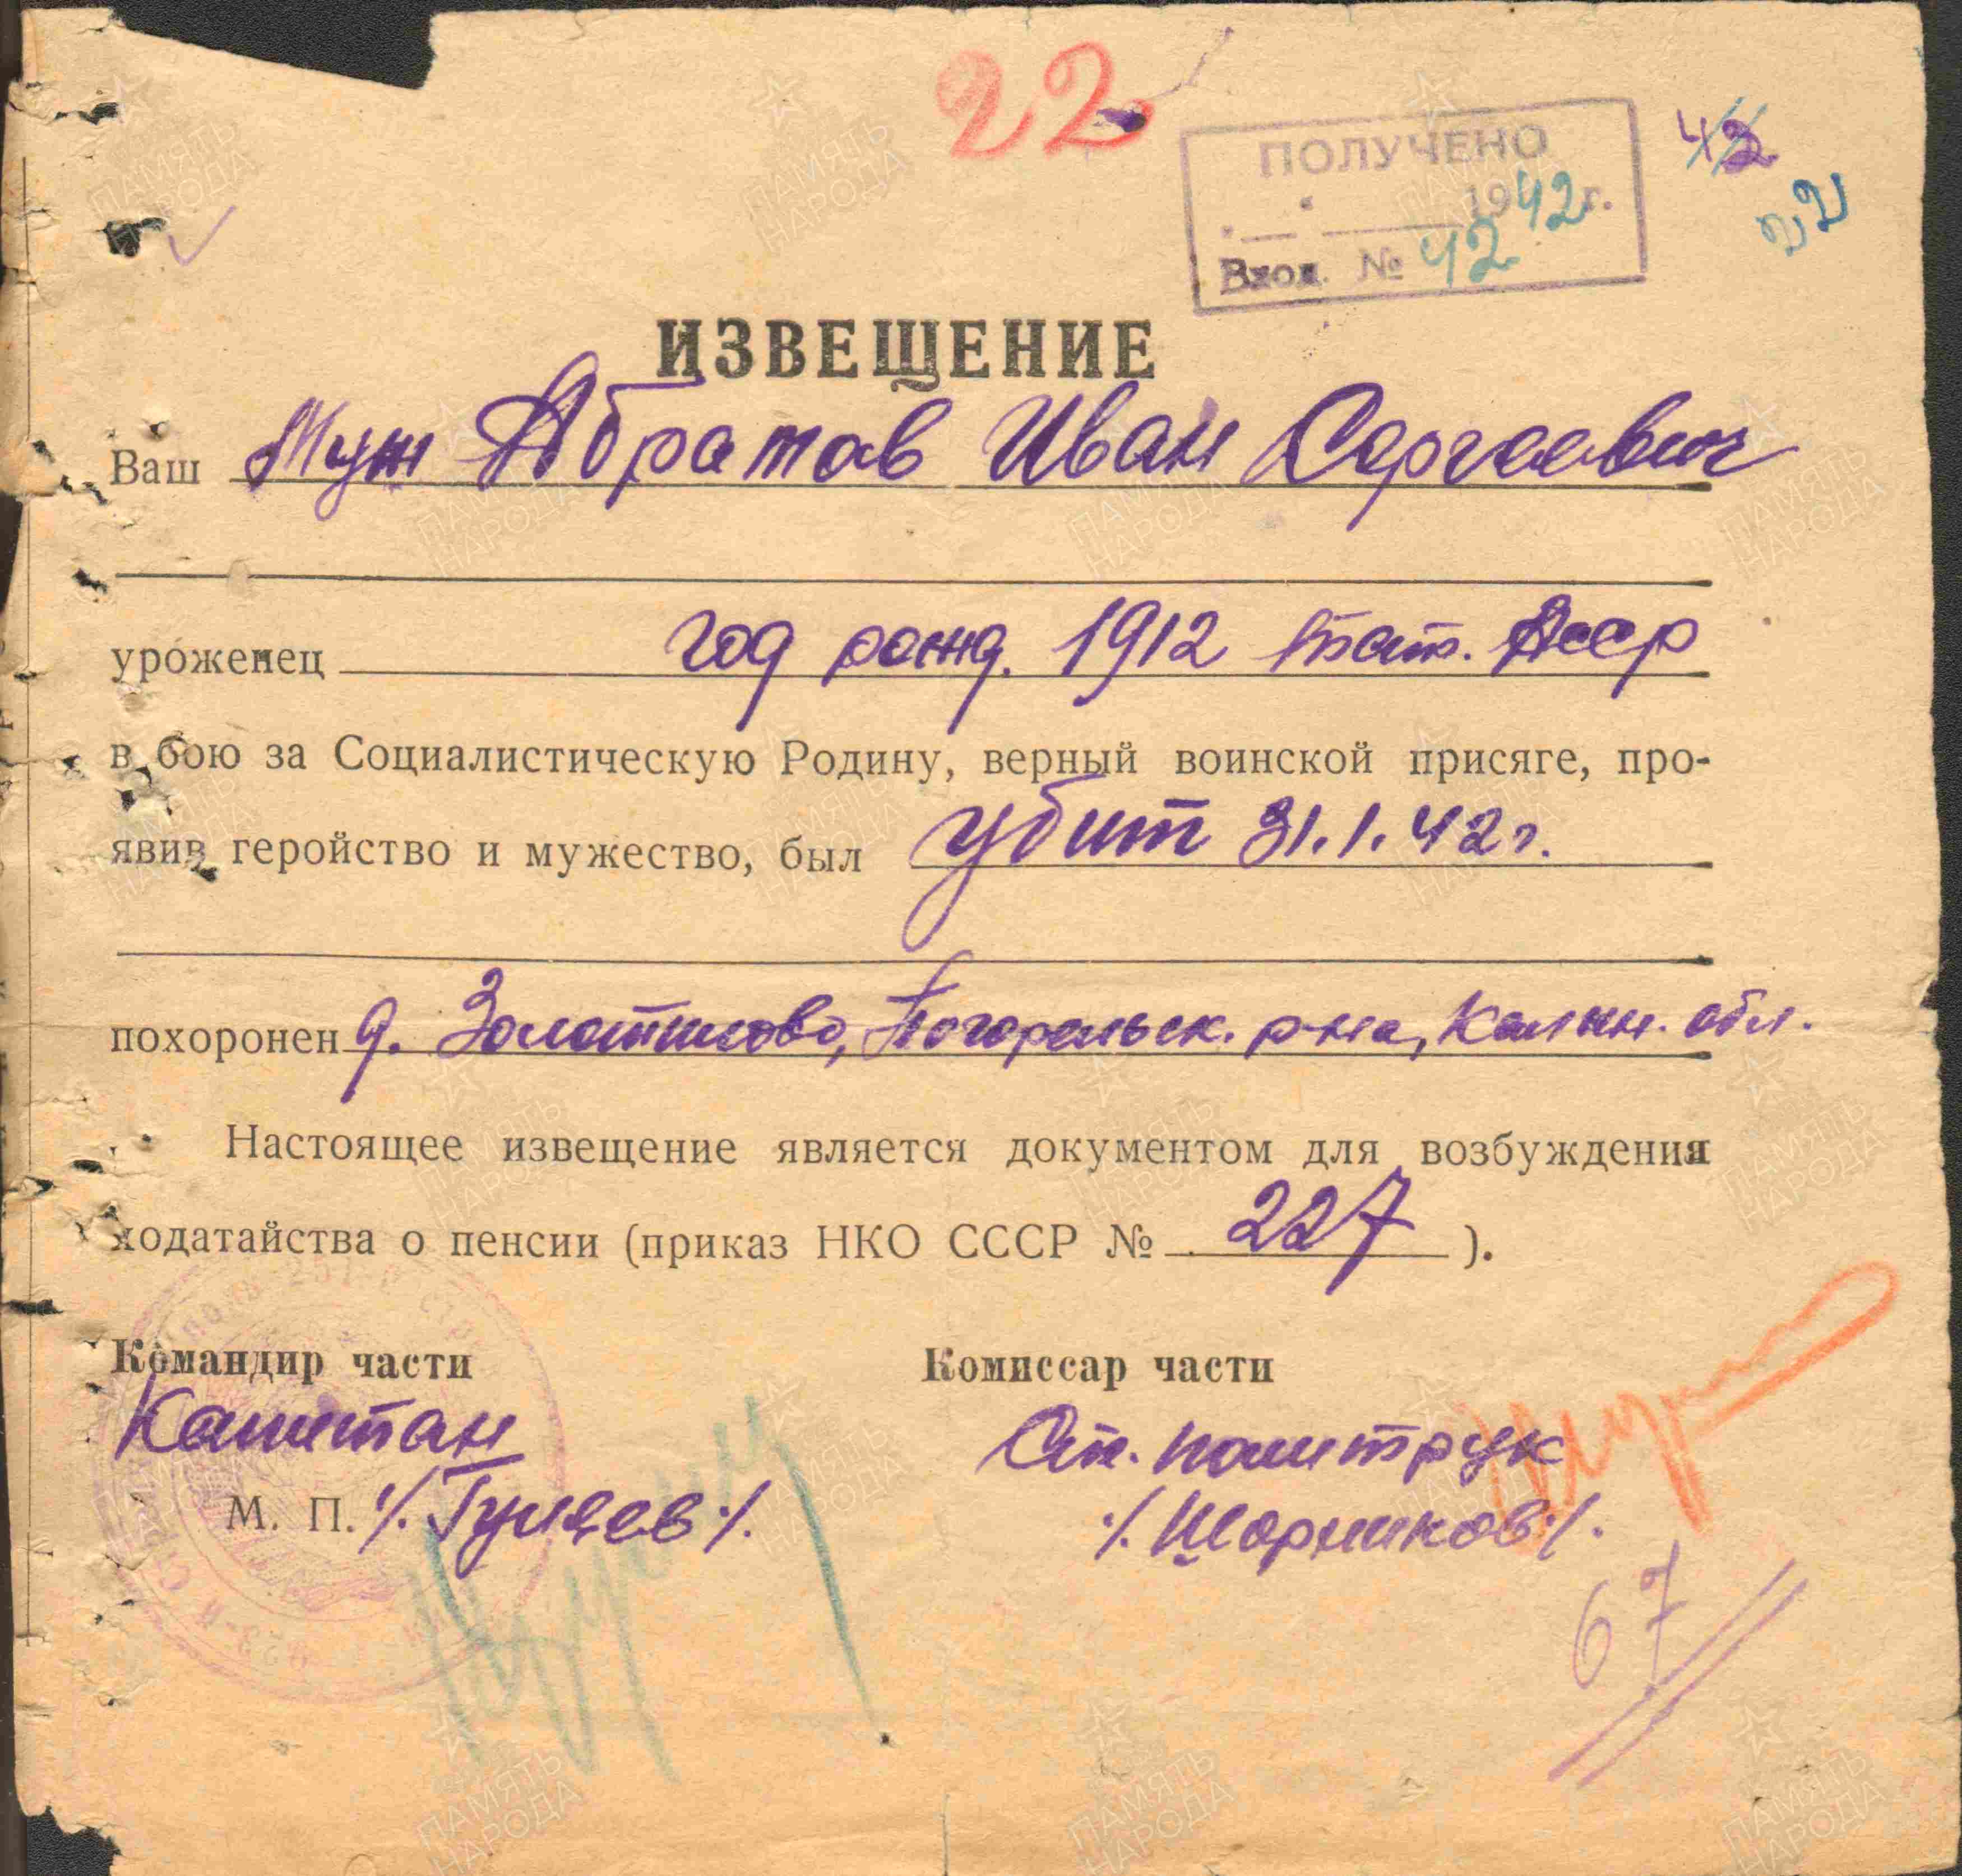 22
ПОЛУЧЕНО
1942 г.
Вход. № 42
42
22
ИЗВЕЩЕНИЕ
Ваш Муж Абратов Иван Сергеевич
уроженец год рожд. 1912 Тат. Асср
в бою за Социалистическую Родину, верный воинской присяге, про-
явив геройство и мужество, был убит 31.1.42 г.
похоронен д. Золотилово, Погорельск. р-на, Калин. обл.
Настоящее извещение является документом для возбуждения
ходатайства о пенсии (приказ НКО СССР № 227 ).
Командир части
Комиссар части
Капитан
Ст. политрук
М. П. /. Гуляев /.
/. Шорников /.
67
ПАМЯТЬ
НАРОДА